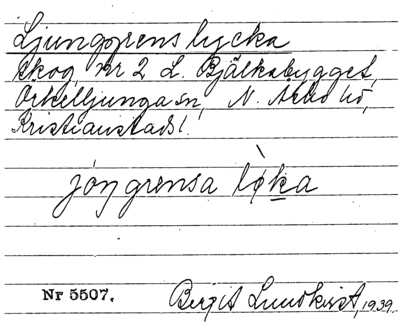 Ljunggrens lycka
Skog, nr 2 L. Bjälkabygget,
Örkelljunga sn, N. Åsbo hd,
Kristianstads l.
jóŋgrensa lỳka
Nr 5507.
Birgit Lundkvist, 1939.